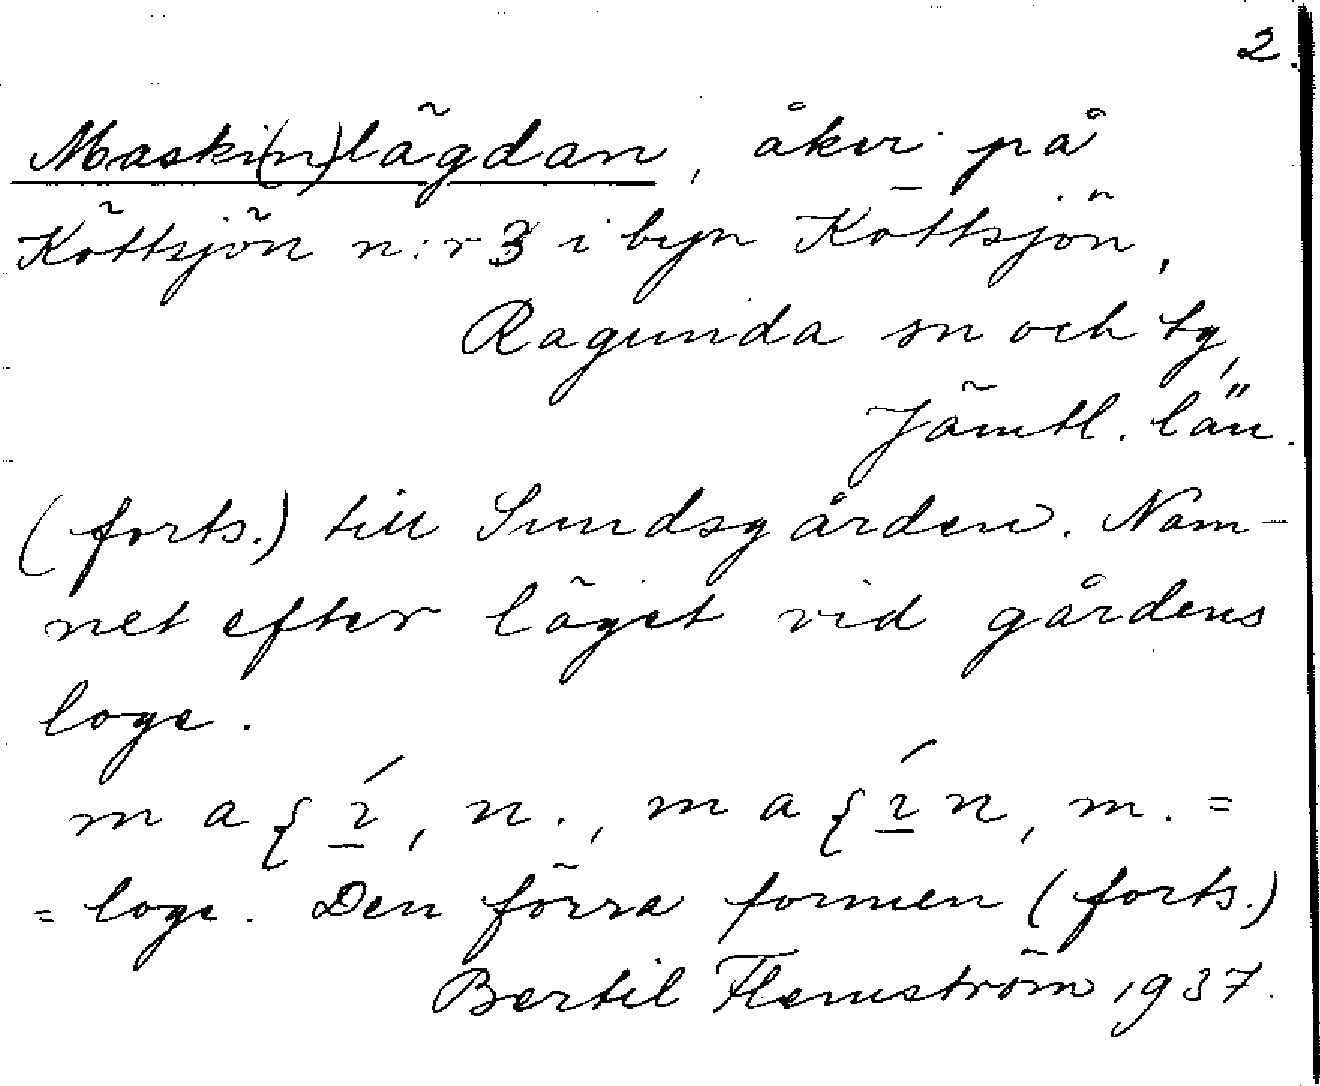 2.
Maski(n)lägdan, åker på
Köttsjön n:r 3 i byn Köttsjön,
Ragunda sn och tg,
Jämtl. län.
(forts.) till Sundsgården. Nam-
net efter läget vid gårdens
loge.
n., m. =
= loge. Den förra formen (forts.)
Bertil Flemström 1937.